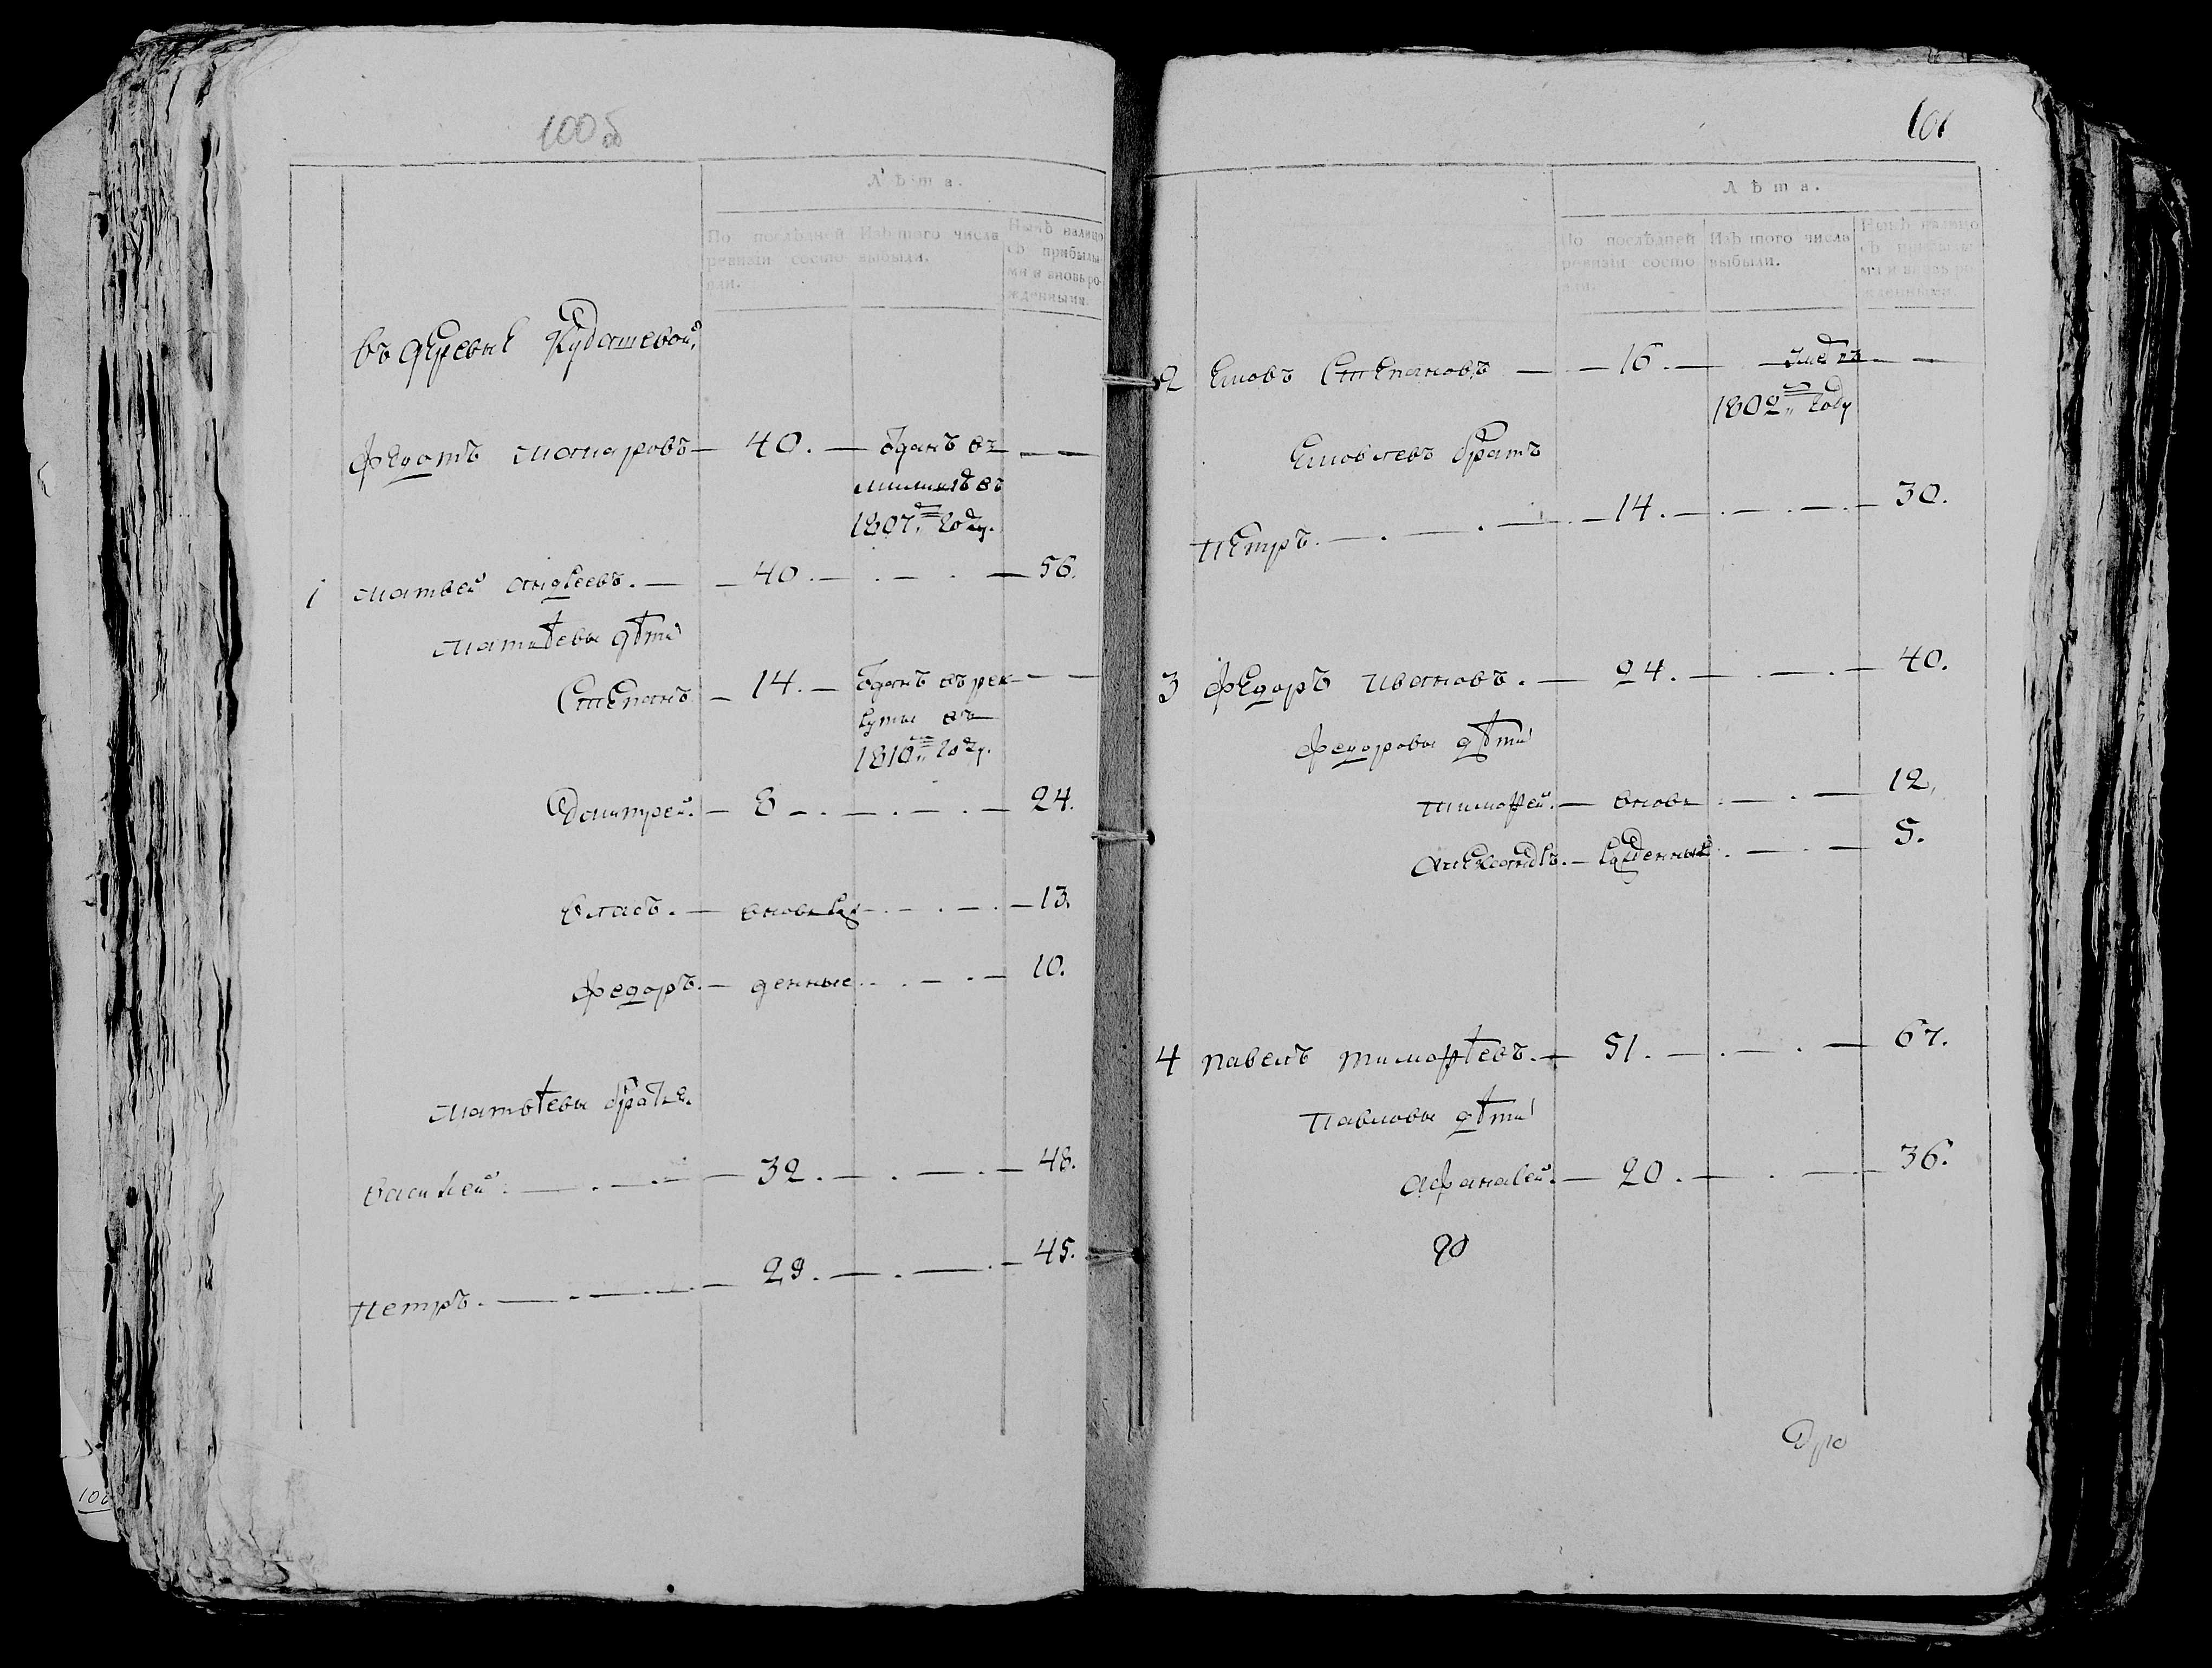 100об
Лѣта.
По послѣдней ревизіи состояли.
Изъ того числа выбыли.
Нынѣ налицо съ прибылыми и вновь рожденными.
Въ деревне Кудашевой,
Федотъ Макаровъ — 40. — Отданъ въ — —
милицію въ
1807мъ году.
1 Матвей Андреевъ. — — 40. — . — . — 56.
Матвѣевы дѣти
Степанъ — 14. — Отданъ въ рек — —
руты въ
1810мъ году.
Дмитрей. — 8 — . — . — . — 24.
Власъ. — вновь ро — . — . — 13.
Федоръ. — жденные . . — . — 10.
Матвѣевы братья.
Василей. — . — . — — 32. — . — . — 48.
Петръ. — . — . — . — 29. — . — . — 45.
101
Лѣта.
По послѣдней ревизіи состояли.
Изъ того числа выбыли.
Нынѣ налицо съ прибылыми и вновь рожденными.
2 Степановъ — — 16. — — — —
1802м году
братъ
Петръ. — . — . — . — 14. — . — . — 30.
3 Федоръ Ивановъ. — 24. — . — . — 40.
Федоровы дѣти
Тимофей. — вновь . — . — 12.
Александръ. — рожденные . — . — 5.
4 Павелъ Тимофѣевъ. — 51. — . — . — 67.
Павловы дѣти
Афанасей. — 20. — . — 36.
100